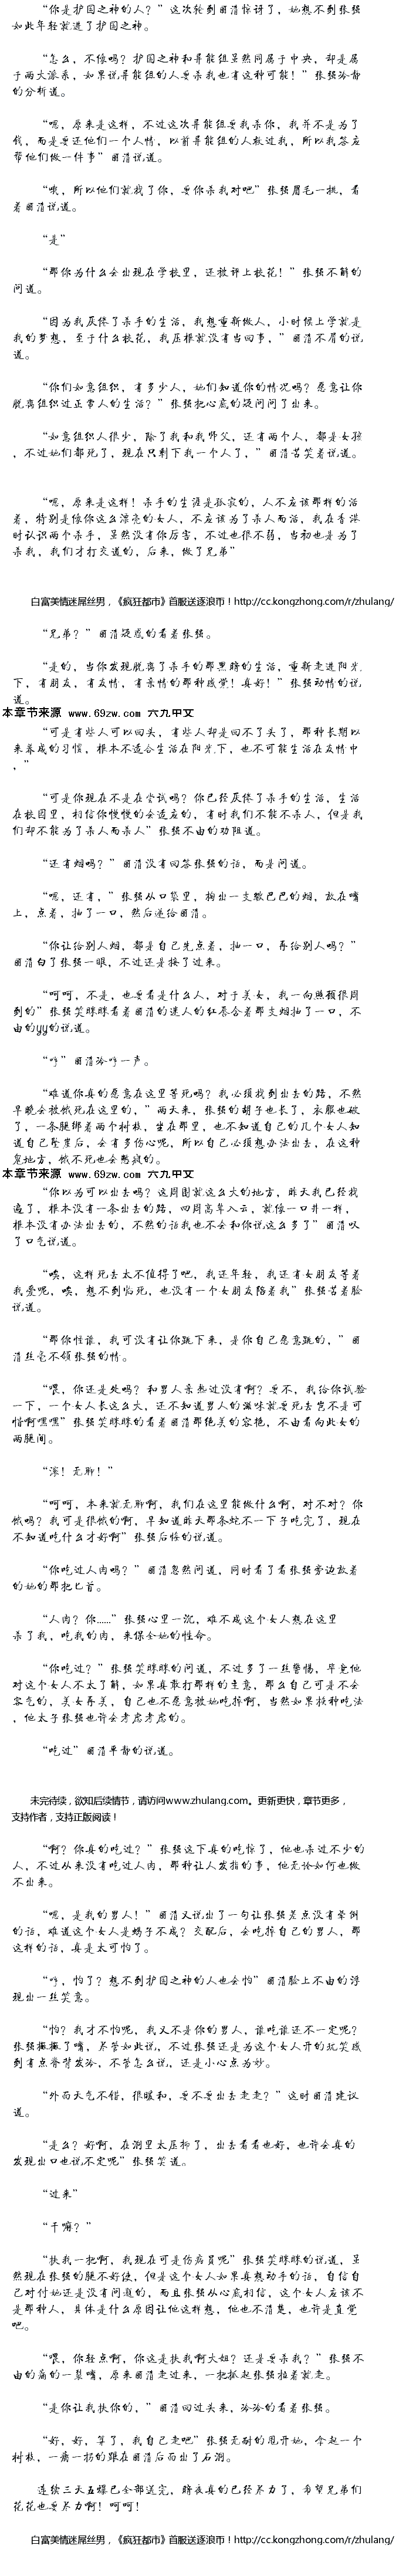 “你是护国之神的人？”这次轮到田清惊讶了，她想不到张强
如此年轻就进了护国之神。
“怎么，不像吗？护国之神和异能组虽然同属于中央，却是属
于两大派系，如果说异能组的人要杀我也有这种可能！”张强冷静
的分析道。
“嗯，原来是这样，不过这次异能组要我杀你，我并不是为了
钱，而是要还他们一个人情，以前异能组的人救过我，所以我答应
帮他们做一件事”田清说道。
“哦，所以他们就找了你，要你杀我对吧”张强眉毛一挑，看
着田清说道。
“是”
“那你为什么会出现在学校里，还被评上校花！”张强不解的
问道。
“因为我厌倦了杀手的生活，我想重新做人，小时候上学就是
我的梦想，至于什么校花，我压根就没有当回事，”田清不屑的说
道。
“你们如意组织，有多少人，她们知道你的情况吗？愿意让你
脱离组织过正常人的生活？”张强把心底的疑问问了出来。
“如意组织人很少，除了我和我师父，还有两个人，都是女孩
，不过她们都死了，现在只剩下我一个人了，”田清苦笑着说道。
“嗯，原来是这样！杀手的生涯是孤寂的，人不应该那样的活
着，特别是像你这么漂亮的女人，不应该为了杀人而活，我在香港
时认识两个杀手，虽然没有你厉害，不过也很不弱，当初也是为了
杀我，我们才打交道的，后来，做了兄弟”
白富美情迷屌丝男，《疯狂都市》首服送逐浪币！http://cc.kongzhong.com/r/zhulang/
“兄弟？”田清疑惑的看着张强。
“是的，当你发现脱离了杀手的那黑暗的生活，重新走进阳光
下，有朋友，有友情，有亲情的那种感觉！真好！”张强动情的说
道。
本章节来源 www.69zw.com 六九中文
“可是有些人可以回头，有些人却是回不了头了，那种长期以
来养成的习惯，根本不适合生活在阳光下，也不可能生活在友情中
，”
“可是你现在不是在尝试吗？你已经厌倦了杀手的生活，生活
在校园里，相信你慢慢的会适应的，有时我们不能不杀人，但是我
们却不能为了杀人而杀人”张强不由的劝阻道。
“还有烟吗？”田清没有回答张强的话，而是问道。
“嗯，还有，”张强从口袋里，掏出一支皱巴巴的烟，放在嘴
上，点着，抽了一口，然后递给田清。
“你让给别人烟，都是自己先点着，抽一口，再给别人吗？”
田清白了张强一眼，不过还是接了过来。
“呵呵，不是，也要看是什么人，对于美女，我一向照顾很周
到的”张强笑眯眯看着田清的迷人的红唇含着那支烟抽了一口，不
由的yy的说道。
“哼”田清冷哼一声。
“难道你真的愿意在这里等死吗？我必须找到出去的路，不然
早晚会被饿死在这里的，”两天来，张强的胡子也长了，衣服也破
了，一条腿绑着两个树枝，坐在那里，也不知道自己的几个女人知
道自己坠崖后，会有多伤心呢，所以自己必须想办法出去，在这种
鬼地方，饿不死也会憋疯的。
本章节来源 www.69zw.com 六九中文
“你以为可以出去吗？这周围就这么大的地方，昨天我已经找
遍了，根本没有一条出去的路，四周高耸入云，就像一口井一样，
根本没有办法出去的，不然的话我也不会和你说这么多了”田清叹
了口气说道。
“唉，这样死去太不值得了吧，我还年轻，我还有女朋友等着
我爱呢，唉，想不到临死，也没有一个女朋友陪着我”张强苦着脸
说道。
“那你怪谁，我可没有让你跳下来，是你自己愿意跳的，”田
清丝毫不领张强的情。
“喂，你还是处吗？和男人亲热过没有啊？要不，我给你试验
一下，一个女人长这么大，还不知道男人的滋味就要死去岂不是可
惜啊嘿嘿”张强笑眯眯的看着田清那绝美的容艳，不由看向此女的
两腿间。
“滚！无聊！”
“呵呵，本来就无聊啊，我们在这里能做什么啊，对不对？你
饿吗？我可是很饿的啊，早知道昨天那条蛇不一下子吃完了，现在
不知道吃什么才好啊”张强后悔的说道。
“你吃过人肉吗？”田清忽然问道，同时看了看张强旁边放着
的她的那把匕首。
“人肉？你……”张强心里一沉，难不成这个女人想在这里
杀了我，吃我的肉，来保全她的性命。
“你吃过？”张强笑眯眯的问道，不过多了一丝警惕，毕竟他
对这个女人不太了解，如果真敢打那样的主意，那么自己可是不会
客气的，美女再美，自己也不愿意被她吃掉啊，当然如果换种吃法
，他太子张强也许会考虑考虑的。
“吃过”田清平静的说道。
未完待续，欲知后续情节，请访问www.zhulang.com。更新更快，章节更多，
支持作者，支持正版阅读！
“啊？你真的吃过？”张强这下真的吃惊了，他也杀过不少的
人，不过从来没有吃过人肉，那种让人发指的事，他无论如何也做
不出来。
“嗯，是我的男人！”田清又说出了一句让张强差点没有晕倒
的话，难道这个女人是蝎子不成？交配后，会吃掉自己的男人，那
这样的话，真是太可怕了。
“哼，怕了？想不到护国之神的人也会怕”田清脸上不由的浮
现出一丝笑意。
“怕？我才不怕呢，我又不是你的男人，谁吃谁还不一定呢？
张强撇撇了嘴，尽管如此说，不过张强还是为这个女人开的玩笑感
到有点脊背发冷，不管怎么说，还是小心点为妙。
“外面天气不错，很暖和，要不要出去走走？”这时田清建议
道。
“是么？好啊，在洞里太压抑了，出去看看也好，也许会真的
发现出口也说不定呢”张强笑道。
“过来”
“干嘛？”
“扶我一把啊，我现在可是伤病员呢”张强笑眯眯的说道，虽
然现在张强的腿不好使，但是这个女人如果真想动手的话，自信自
己对付她还是没有问题的，而且张强从心底相信，这个女人应该不
是那种人，具体是什么原因让他这样想，他也不清楚，也许是直觉
吧。
“喂，你轻点啊，你这是扶我啊大姐？还是要杀我？”张强不
由的痛的一裂嘴，原来田清走过来，一把抓起张强拉着就走。
“是你让我扶你的，”田清回过头来，冷冷的看着张强。
“好，好，算了，我自己走吧”张强无耐的甩开她，拿起一个
树枝，一瘸一拐的跟在田清后面出了石洞。
连续三天五糉已全部送完，暗夜真的已经尽力了，希望兄弟们
花花也要尽力啊！呵呵！
白富美情迷屌丝男，《疯狂都市》首服送逐浪币！http://cc.kongzhong.com/r/zhulang/